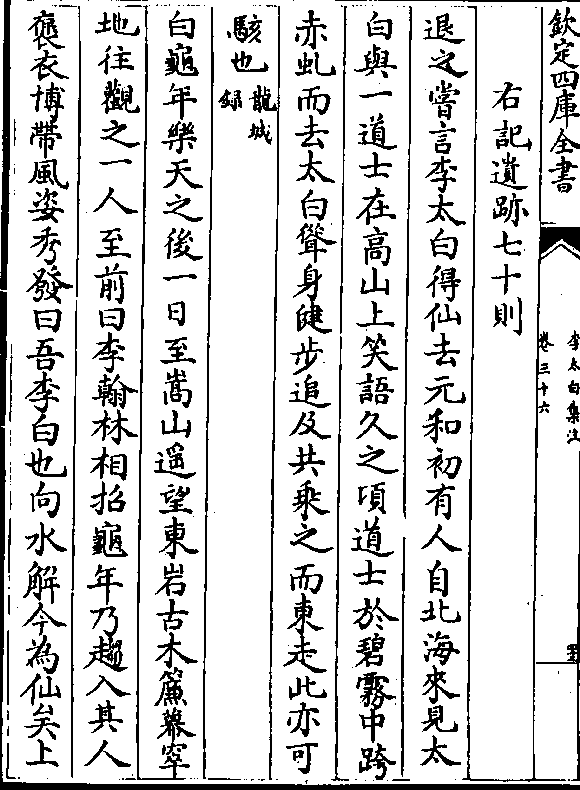 欽定四庫全書
李太白集注
卷三十六
右記遺跡七十則
退之嘗言李太白得仙去元和初有人自北海來見太
白與一道士在高山上笑語久之頃道士於碧霧中跨
赤虬而去太白聳身健步追及共乘之而東走此亦可
駭也龍城
録
白龜年樂天之後一日至嵩山遥望東岩古木簾幕窣
地往觀之一人至前曰李翰林相招龜年乃趨入其人
褒衣博帶風姿秀發曰吾李白也向水解今為仙矣上